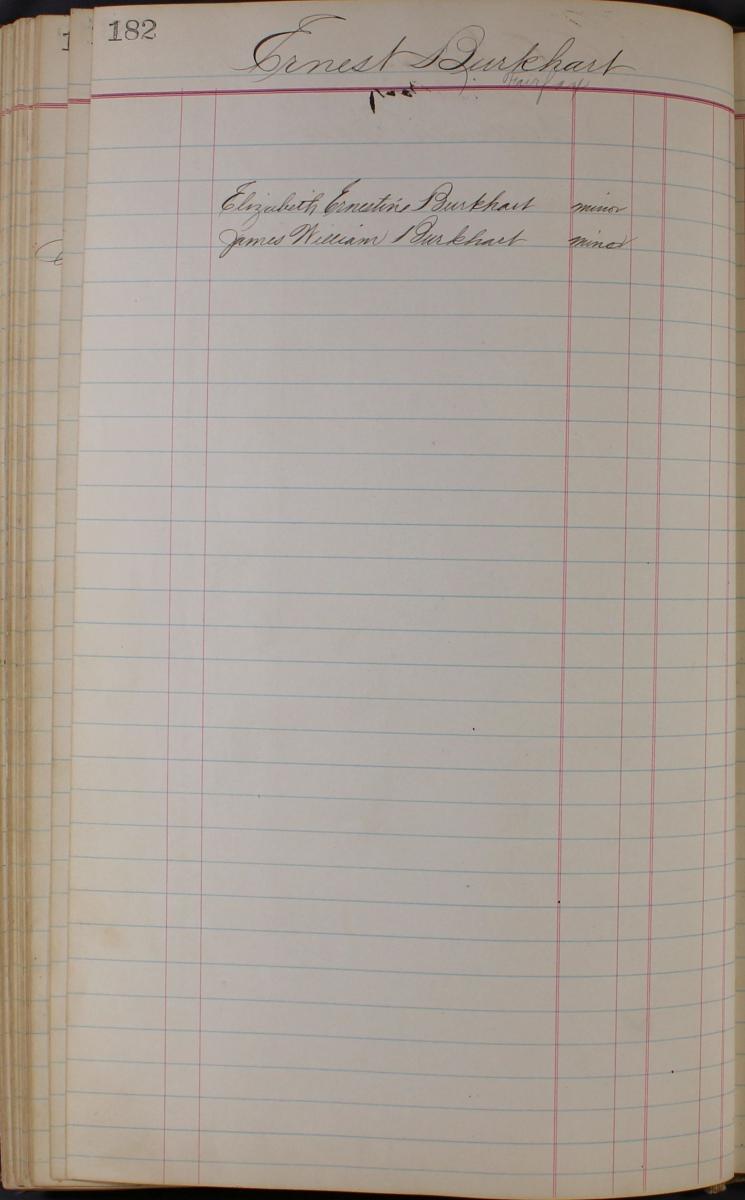 182
Ernest Burkhart
Fairfax
Elizabeth Ernestine Burkhart minor
James William Burkhart minor